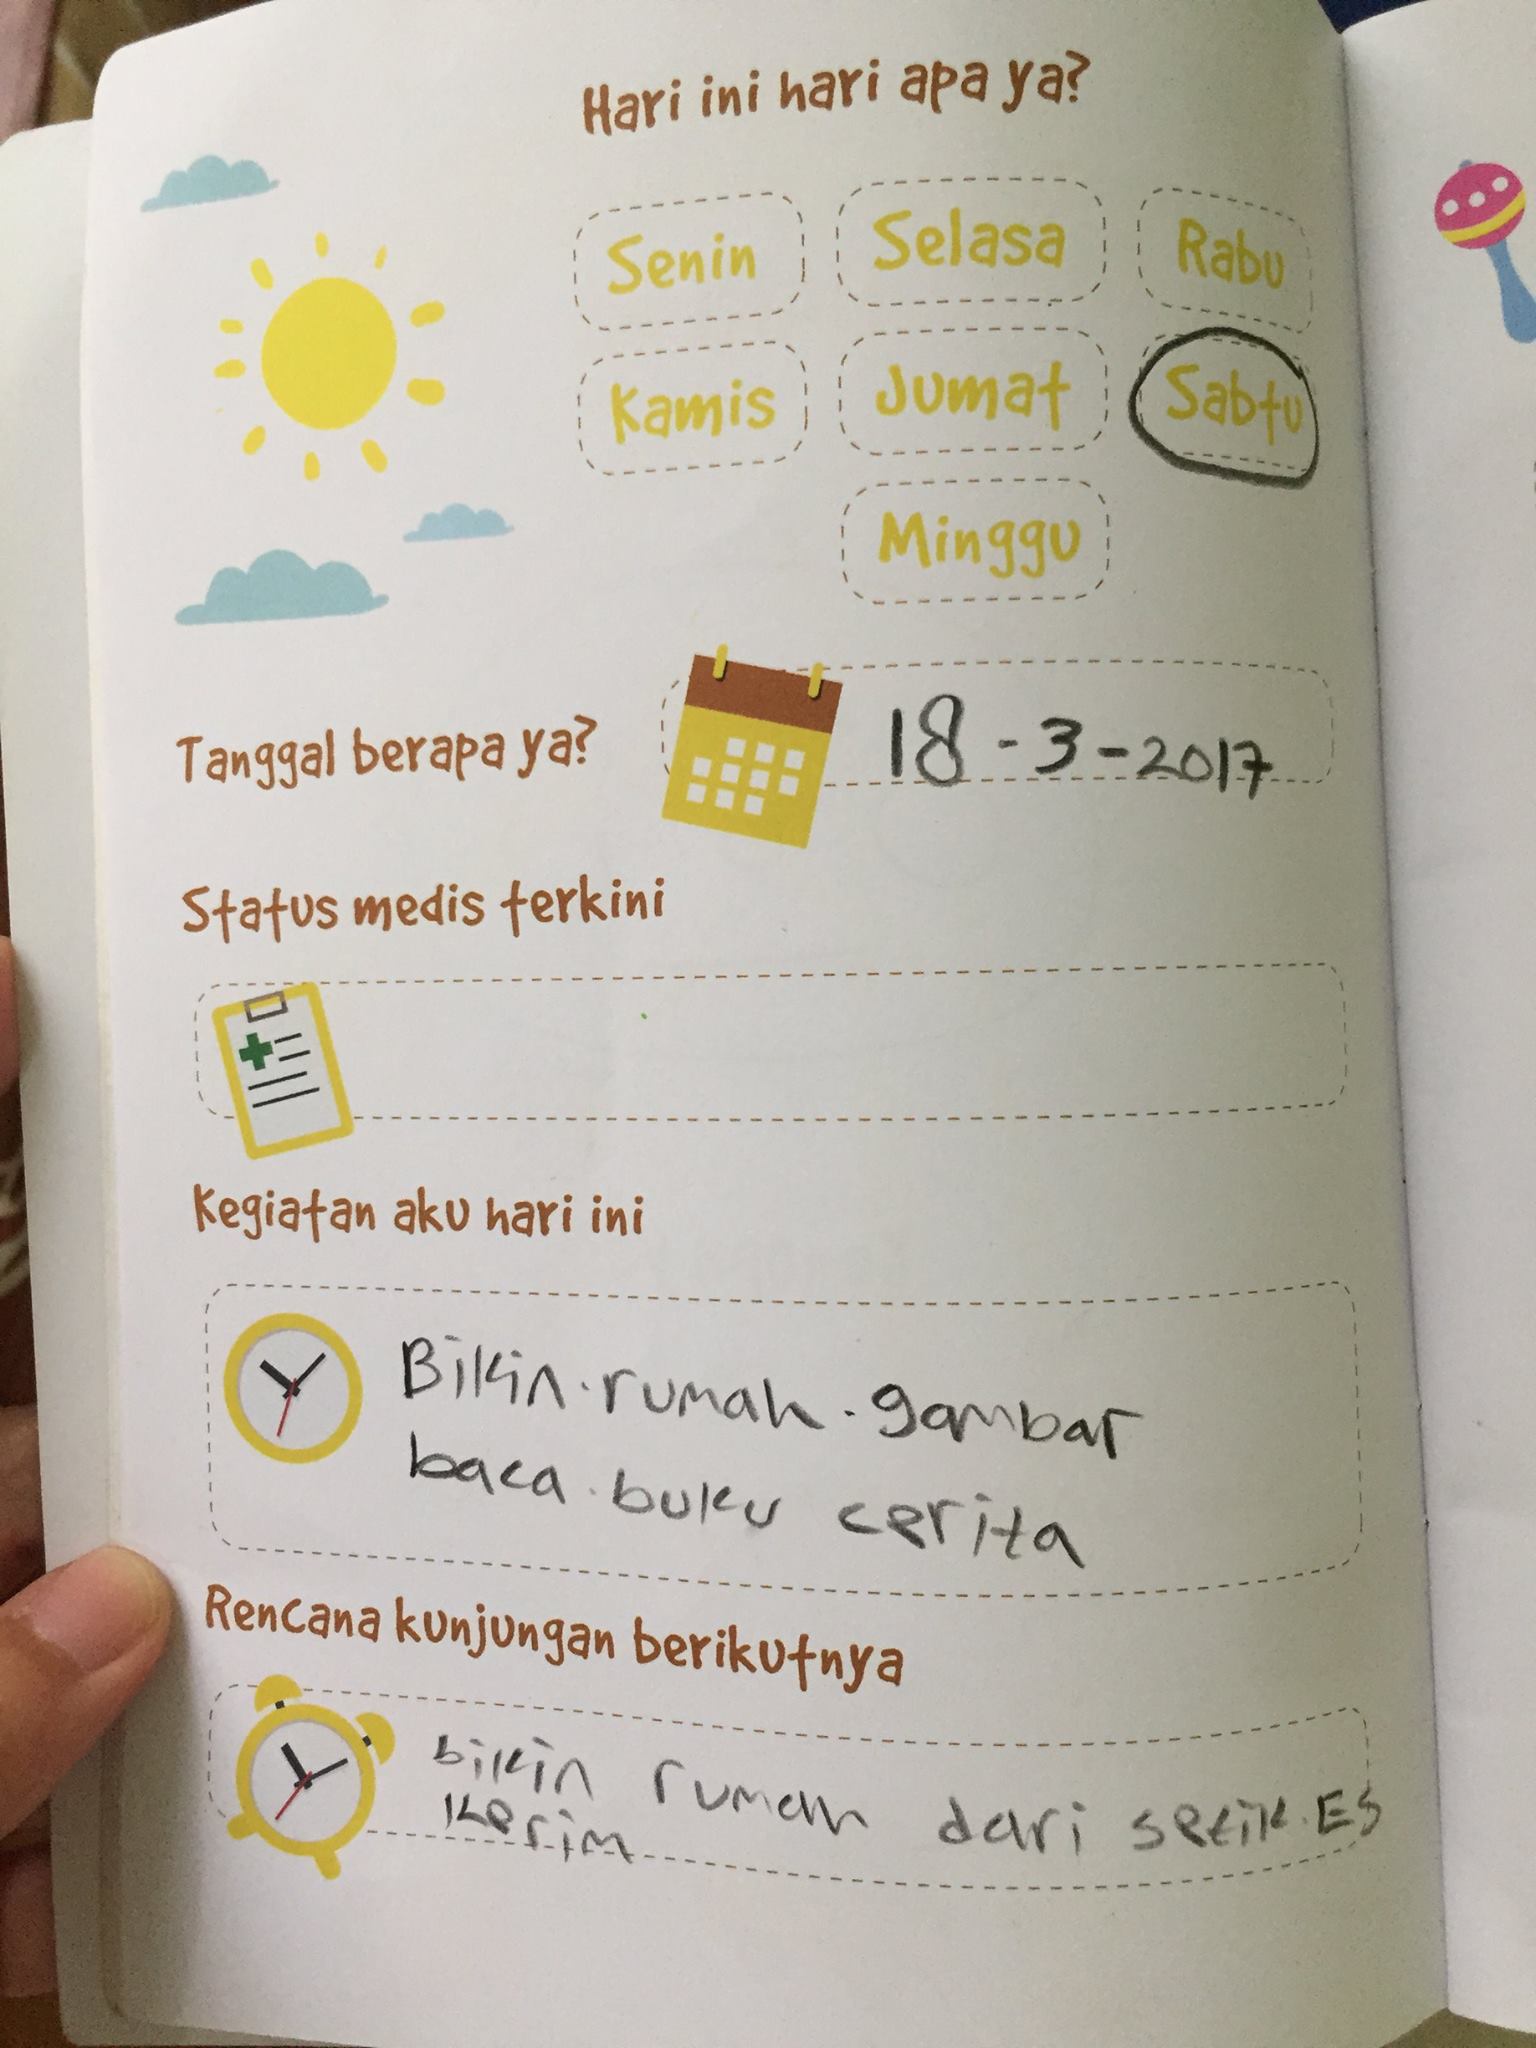 Hari ini hari apa ya?
Senin Selasa Rabu
Kamis Jumat Sabtu
Minggu
Tanggal berapa ya? 18-3-2017
Status medis terkini
Kegiatan aku hari ini
Bikin.rumah.gambar
baca.buku cerita
Rencana kunjungan berikutnya
bikin rumah dari setik.ES
Kerim